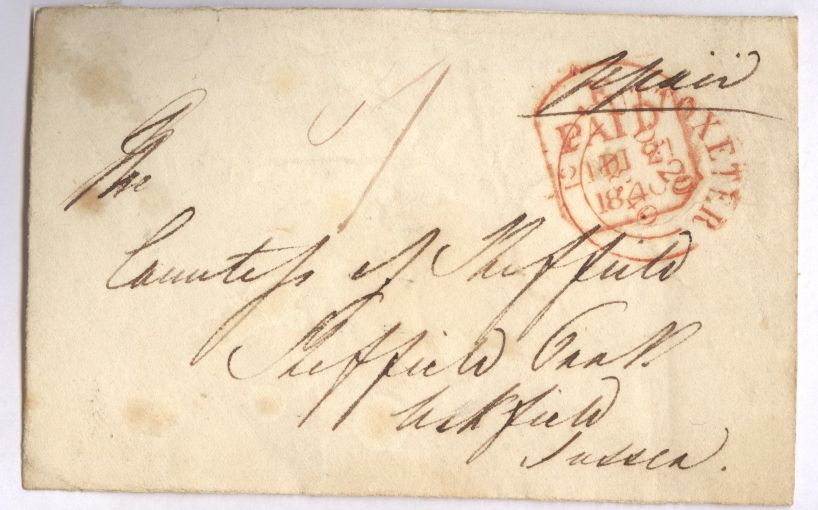 prepaid
PAID
EXETER
DE 20
1840
1
The
Countess of Sheffield
Sheffield Park
Uckfield
Sussex.